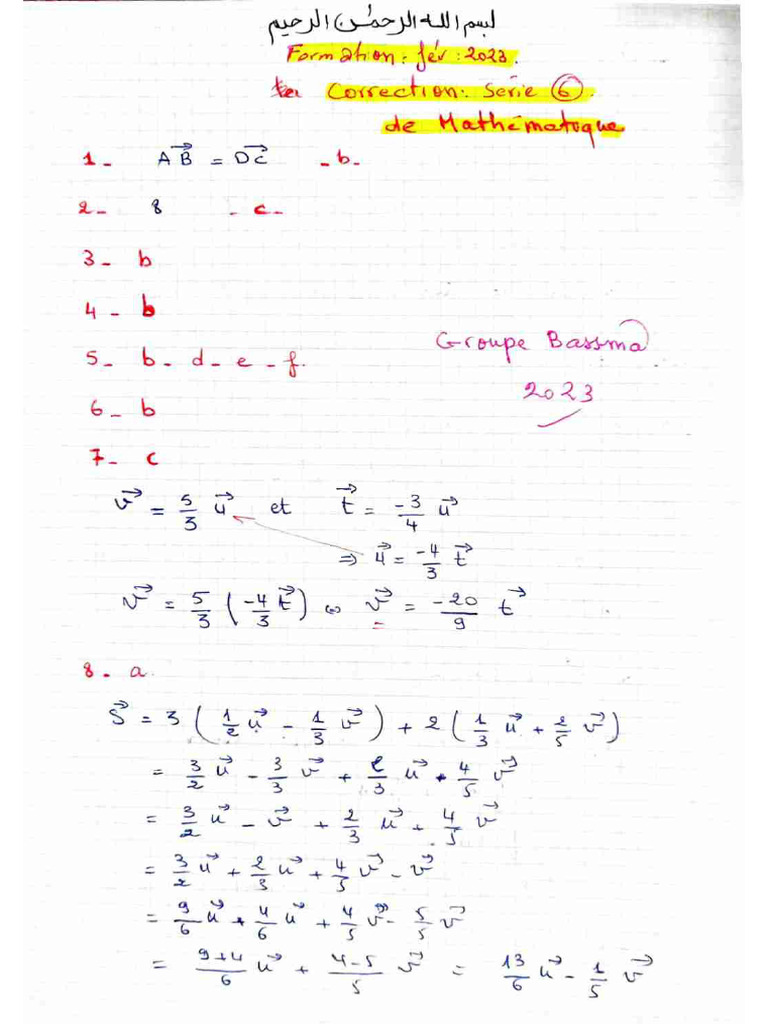 لبسم الله الرحمن الرحيم
Formation: fév: 2023.
Correction: Série 6.
de Mathématique
1- AB⃗ = DC⃗ -b-
2- 8 -c-
3- b
4- b
Groupe Bassma
5- b-d-e-f.
2023
6- b
7- c
v⃗ = 5/3 u⃗ et t⃗ = -3/4 u⃗
⇒ u⃗ = -4/3 t⃗
v⃗ = 5/3 (-4/3 t⃗) ∞ v⃗ = -20/9 t⃗
8- a
S⃗ = 3 (1/2 u⃗ - 1/3 v⃗) + 2 (1/3 u⃗ + 2/5 v⃗)
= 3/2 u⃗ - 3/3 v⃗ + 2/3 u⃗ + 4/5 v⃗
= 3/2 u⃗ - v⃗ + 2/3 u⃗ + 4/5 v⃗
= 3/2 u⃗ + 2/3 u⃗ + 4/5 v⃗ - v⃗
= 9/6 u⃗ + 4/6 u⃗ + 4/5 v⃗ - 5/5 v⃗
= 9+4/6 u⃗ + 4-5/5 v⃗ = 13/6 u⃗ - 1/5 v⃗